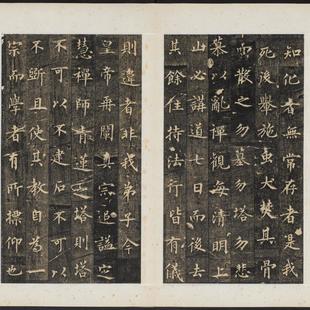 知化者無常存者是我
死後舉施虫犬焚其骨
而散之勿墓勿塔勿悲
慕以亂禪觀每清明上
山必講道七日而後去
其餘住持法行皆有儀
則違者非我弟子今
皇帝再闡真宗追謚定
慧禪師青蓮之塔則塔
不可以不建石不可以
不斵且使其教自為一
宗而學者有所標仰也